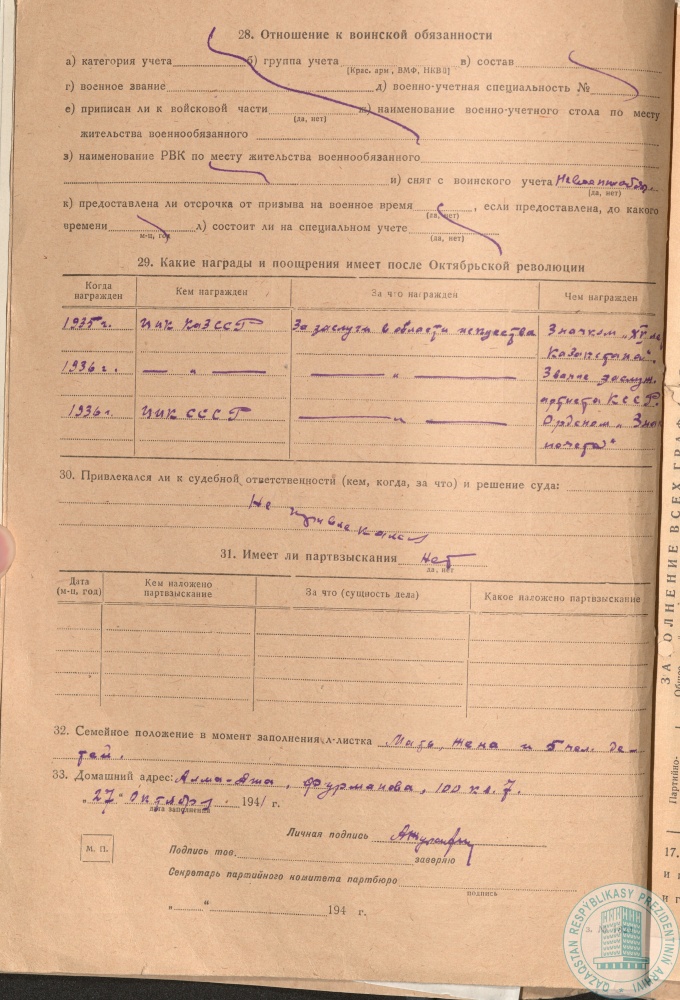 28. Отношение к воинской обязанности
а) категория учета б) группа учета в) состав
(Крас. арм, ВМФ, НКВД)
г) военное звание д) военно-учетная специальность №
е) приписан ли к войсковой части ж) наименование военно-учетного стола по месту
(да, нет)
жительства военнообязанного
з) наименование РВК по месту жительства военнообязанного
и) снят с воинского учета
(да, нет)
к) предоставлена ли отсрочка от призыва на военное время , если предоставлена, до какого
(да, нет)
времени л) состоит ли на специальном учете
м-ц, год (да, нет)
29. Какие награды и поощрения имеет после Октябрьской революции
Когда награжден Кем награжден За что награжден Чем награжден
1935 г. ЦИК КазССР За заслуги в области искусства Значком „XV ле
Казакстана".
1936 г. — " — — " — Звание заслуж.
артиста КССР.
1936 г. ЦИК СССР — " — Орденом „Знак
почета"
30. Привлекался ли к судебной ответственности (кем, когда, за что) и решение суда:
Не привлекался
31. Имеет ли партвзыскания Нет
да, нет
Дата (м-ц, год) Кем наложено партвзыскание За что (сущность дела) Какое наложено партвзыскание
32. Семейное положение в момент заполнения л-листка Мать, жена и 5 чел. де-
тей.
33. Домашний адрес: Алма-Ата, Фурманова, 100 кв. 7.
„27" Октября 194/ г.
дата заполнения
Личная подпись
М. П.
Подпись тов. заверяю
Секретарь партийного комитета партбюро
подпись
„ " 194 г.
ЗА ОЛНЕНИЕ ВСЕХ ГРАФ
Партийно-
17.
QAZAQSTAN RESPÝBLIKASY PREZIDENTINIŃ ARHIVI